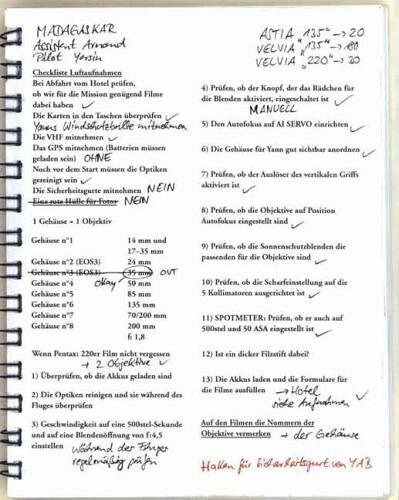 MADAGASKAR
Assistent Armand
Pilot Yersin
Checkliste Luftaufnahmen
Bei Abfahrt vom Hotel prüfen,
ob wir für die Mission genügend Filme
dabei haben ✓
Die Karten in den Taschen überprüfen ✓
Yanns Windschutzbrille mitnehmen
Die VHF mitnehmen ✓
Das GPS mitnehmen (Batterien müssen
geladen sein) OHNE
Noch vor dem Start müssen die Optiken
gereinigt sein ✓
Die Sicherheitsgurte mitnehmen NEIN
Eine rote Hülle für Fotos NEIN
1 Gehäuse = 1 Objektiv
Gehäuse n°1 14 mm und
17–35 mm
Gehäuse n°2 (EOS3) 24 mm
Gehäuse n°3 (EOS3) 35 mm OUT
Gehäuse n°4 okay 50 mm
Gehäuse n°5 85 mm
Gehäuse n°6 135 mm
Gehäuse n°7 70/200 mm
Gehäuse n°8 200 mm
f: 1,8
Wenn Pentax: 220er Film nicht vergessen
+ 2 Objektive ✓
1) Überprüfen, ob die Akkus geladen sind
2) Die Optiken reinigen und sie während des
Fluges überprüfen
3) Geschwindigkeit auf eine 500stel-Sekunde
und auf eine Blendenöffnung von f:4,5
einstellen während der Fluges
regelmäßig prüfen
ASTIA "135" → 20
VELVIA "135" → 180
VELVIA "220" → 20
4) Prüfen, ob der Knopf, der das Rädchen für
die Blenden aktiviert, eingeschaltet ist ✓
MANUELL
5) Den Autofokus auf AI SERVO einrichten ✓
6) Die Gehäuse für Yann gut sichtbar anordnen ✓
7) Prüfen, ob der Auslöser des vertikalen Griffs
aktiviert ist ✓
8) Prüfen, ob die Objektive auf Position
Autofokus eingestellt sind ✓
9) Prüfen, ob die Sonnenschutzblenden die
passenden für die Objektive sind ✓
10) Prüfen, ob die Scharfeinstellung auf die
5 Kollimatoren ausgerichtet ist ✓
11) SPOTMETER: Prüfen, ob er auch auf
500stel und 50 ASA eingestellt ist ✓
12) Ist ein dicker Filzstift dabei?
13) Die Akkus laden und die Formulare für
die Filme ausfüllen → Hotel
siehe Aufnahmen ✓
Auf den Filmen die Nummern der
Objektive vermerken + der Gehäuse
Haken für Sicherheitsgurt von YAB